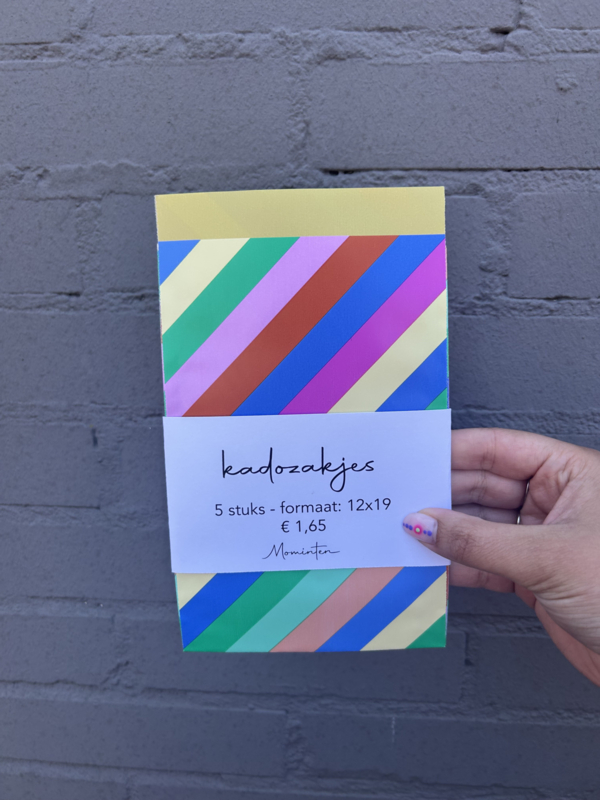 kadozakjes
5 stuks - formaat: 12x19
€ 1,65
Mominten